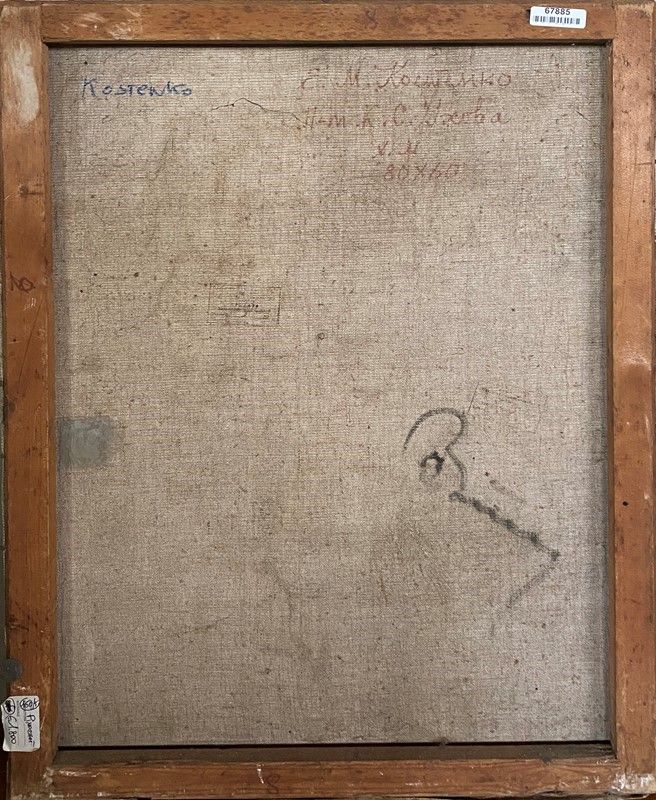 67885
Kostenko
Е. М. Костенко
П-т к. С. Ухова
х. м
80х60
8
8
8